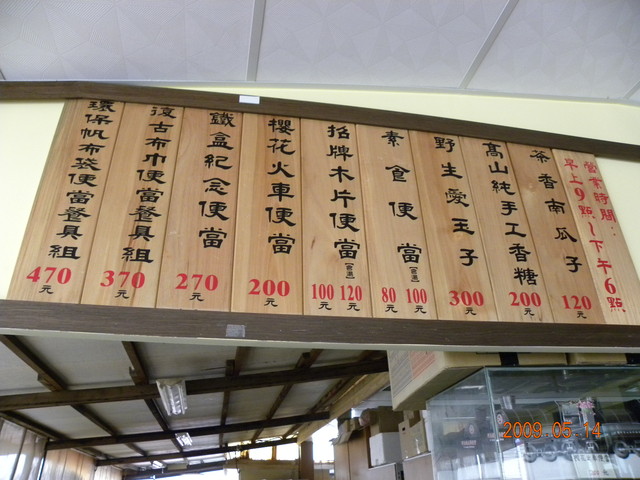 環保帆布袋便當餐具組
470元
復古布巾便當餐具組
370元
鐵盒紀念便當
270元
櫻花火車便當
200元
招牌木片便當
100元 120元
素食便當
80元 100元
野生愛玉子
300元
高山純手工香糖
200元
茶香南瓜子
120元
營業時間:
早上9點~下午6點
2009.05.14